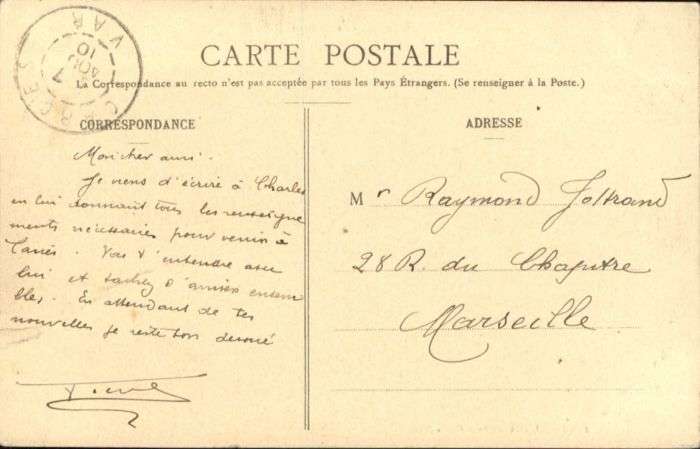 CARTE POSTALE
La Correspondance au recto n'est pas acceptée par tous les Pays Étrangers. (Se renseigner à la Poste.)
CORRESPONDANCE
Mon cher ami.
Je viens d'écrire à Charles
en lui donnant tous les renseigne
ments nécessaires pour venir à
Vas t'entendre avec
lui et tachez d'arriver ensem
bles. En attendant de tes
nouvelles je reste ton dévoué
ADRESSE
Mr Raymond
28 R. du Chapitre
Marseille
VAR
7
AOU
10